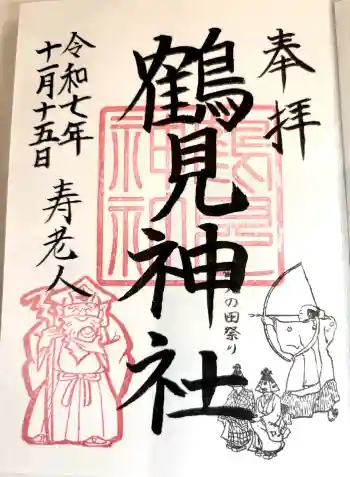 奉拝
鶴見神社
の田祭り
令和七年
十一月十五日
寿老人